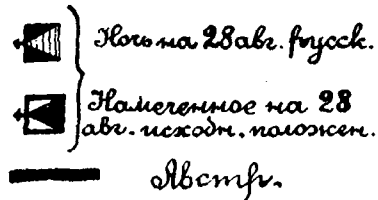 Ночь на 28 авг. русск.
Намеченное на 28
авг. исходн. положен.
Австр.